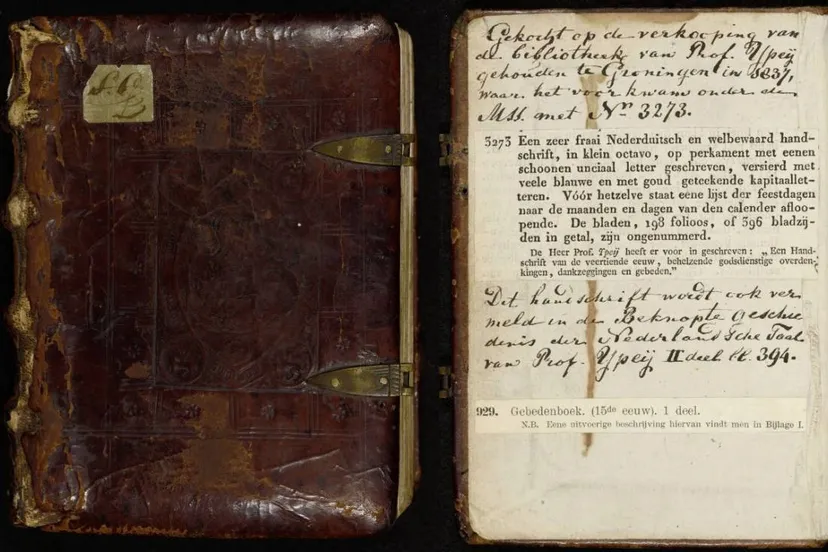 Gekocht op de verkooping van
de bibliotheek van Prof. Ypeij
gehouden te Groningen in 1837,
waar het voorkwam onder de
MSS. met Nº 3273.
3273 Een zeer fraai Nederduitsch en welbewaard hand-
schrift, in klein octavo, op perkament met eenen
schoonen unciaal letter geschreven, versierd met
veele blauwe en met goud geteekende kapitaallet-
teren. Vóór hetzelve staat eene lijst der feestdagen
naar de maanden en dagen van den calender afloo-
pende. De bladen, 198 folioos, of 396 bladzij-
den in getal, zijn ongenummerd.
De Heer Prof. Ypeij heeft er voor in geschreven: „Een Hand-
schrift van de veertiende eeuw, behelzende godsdienstige overden-
kingen, dankzeggingen en gebeden.”
Dit handschrift wordt ook ver
meld in de Beknopte Geschie
denis der Nederlandsche Taal
van Prof. Ypeij II deel bl. 394.
929. Gebedenboek. (15de eeuw). 1 deel.
N.B. Eene uitvoerige beschrijving hiervan vindt men in Bijlage I.